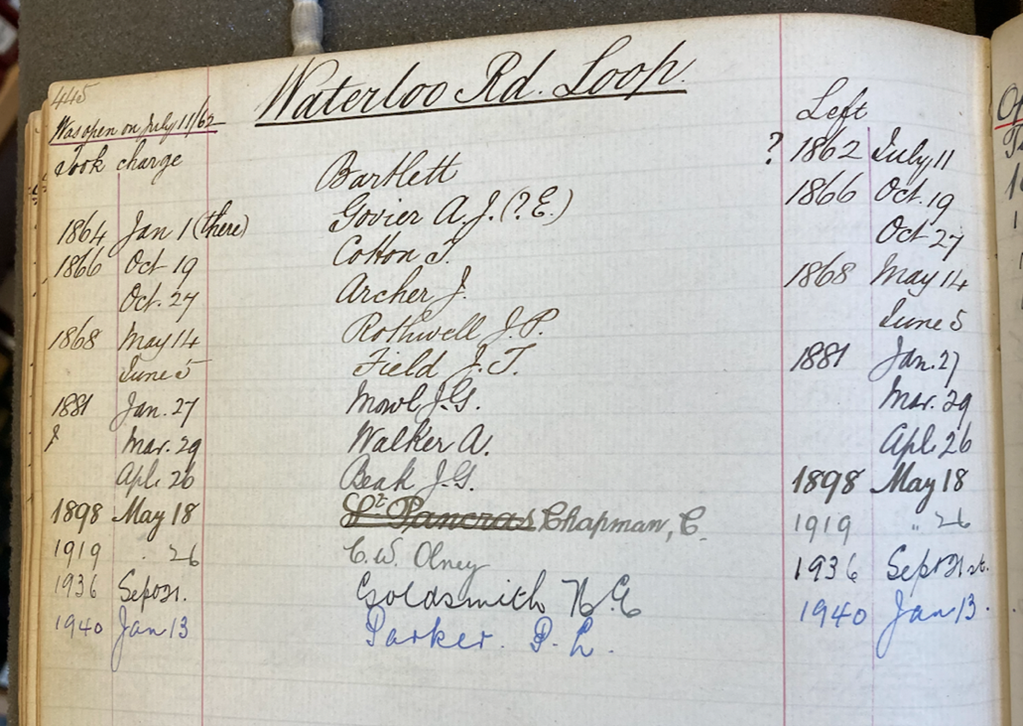 445
Waterloo Rd. Loop.
Was open on July 11/62
Took charge Left
Bartlett ? 1862 July 11
1864 Jan 1 (there) Govier A. J. (?E.) 1866 Oct. 19
1866 Oct 19 Cotton T. Oct 27
Oct. 27 Archer J. 1868 May 14
1868 May 14 Rothwell J. P. June 5
June 5 Field J. T. 1881 Jan. 27
1881 Jan. 27 Mowl J. G. Mar. 29
Mar. 29 Walker A. Apl. 26
Apl. 26 Beak J. G. 1898 May 18
1898 May 18 St Pancras Chapman, C. 1919 " 26
1919 " 26 C. W. Olney 1936 Sept 31st.
1936 Sept 31. Goldsmith H. G. 1940 Jan 13.
1940 Jan 13 Parker. P. L.